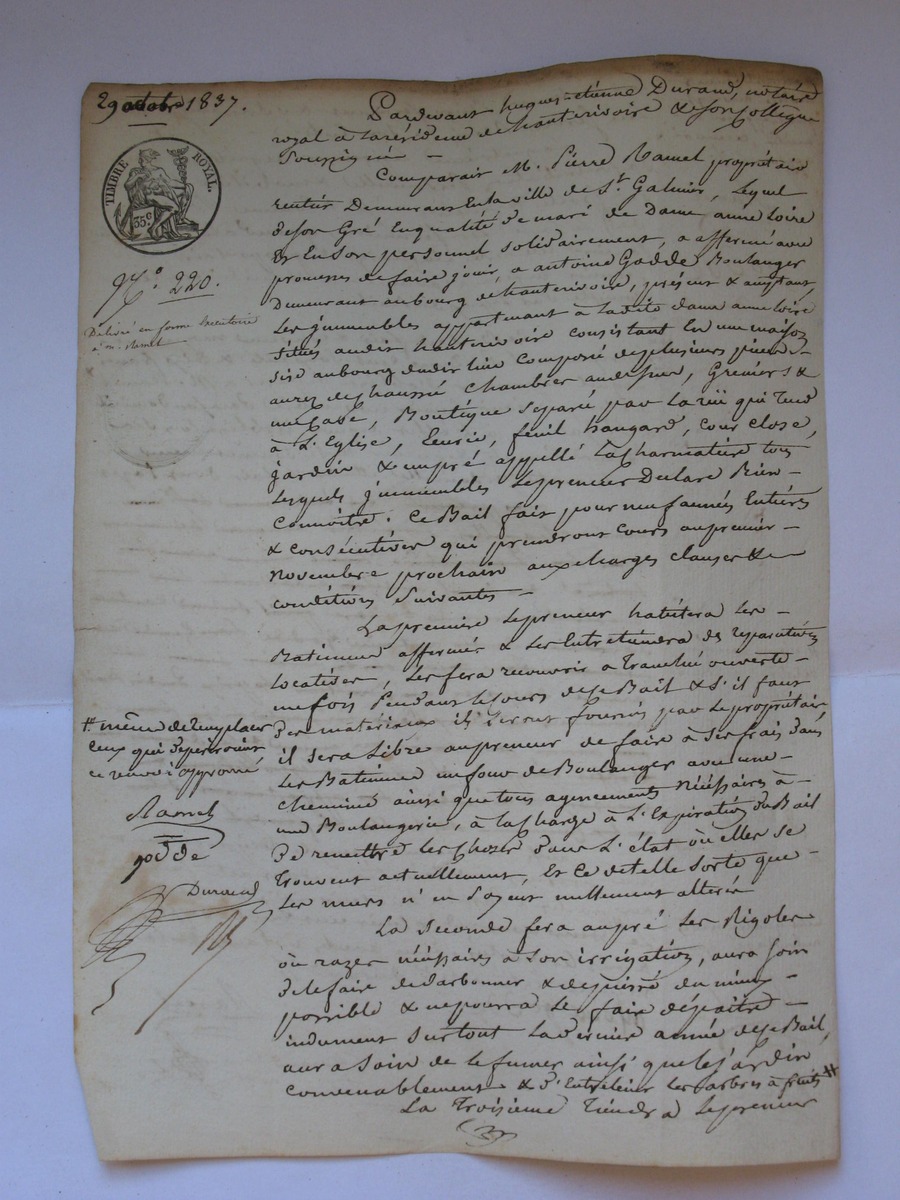 29 octobre 1837.
Pardevant hugues-étienne Durand, notaire
royal à la résidence de hauterivoire & son Collegue
Soussigné —
TIMBRE ROYAL.
35.c
N.o 220.
Délivré en forme Exécutoire
à m. Ramel
Comparait M. Pierre Ramel propriétaire
rentier Demeurant En la ville de St. Galmier, Lequel
de son Gré En qualité de mari de Dame anne Loire
& En son personnel solidairement, a affermé avec
promesse de faire jouir, a antoine Godde Boulanger
Demeurant au bourg de hauterivoire, présent & acceptant,
Les jmmeubles appartenant à ladite dame anne Loire
situés audit hauterivoire consistant En une maison
sise au bourg dudit lieu Composée de plusieurs pieces
au rez de chaussé Chambres au dessus, Greniers &
une Cave, Boutique separé par La rüe qui Tend
à L'Eglise, Ecurie, fenil hangard, cour close,
jardin & un pré appellé La Charmatière tous
Lesquels jmmeubles Le preneur Declare Bien
Connoitre. Ce Bail fait pour neuf années Entières
& consécutives qui prendront Cours au premier
novembre prochain aux charges clauses &
conditions Suivantes —
La premiere Le preneur habitera Les
Batimens affermés & Les Entretiendra de reparations
Locatives, Les fera recouvrir a Tranché ouverte
une fois Pendant le cours de ce Bail & S'il faut
Des materiaux ils seront fournis par Le propriétaire
il sera Libre au preneur de faire à Ses frais dans
Les Batimens un four de Boulanger avec une
cheminé ainsi que tous agencements Nécéssaires à
une Boulangerie, à La Charge à L'Expiration du Bail
De remettre Les choses dans L'état où elles se
Trouvent actuellement, Et ce de telle Sorte que
Les murs n'en Soyent nullement altérés
# même de remplacer
ceux qui périroint
ce renvoi approuvé
Ramel
godde
Durand
La Seconde fera au pré Les Rigoles
où razes nécéssaires à Son irrigation, aura Soin
de le faire & du mieux
possible & ne pourra Le faire dépaitre
indument Surtout La dernier année de ce Bail,
aura Soin de le fumer ainsi que le jardin
convenablement & d'Entretenir Les arbres à fruits #
La Troisieme Tiendra Le preneur